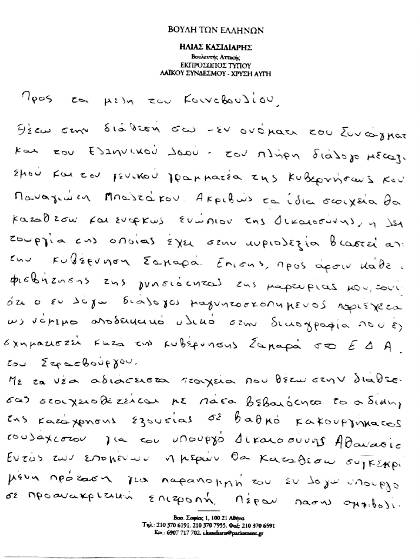 ΒΟΥΛΗ ΤΩΝ ΕΛΛΗΝΩΝ
ΗΛΙΑΣ ΚΑΣΙΔΙΑΡΗΣ
Βουλευτής Αττικής
ΕΚΠΡΟΣΩΠΟΣ ΤΥΠΟΥ
ΛΑΪΚΟΥ ΣΥΝΔΕΣΜΟΥ - ΧΡΥΣΗ ΑΥΓΗ
Προς τα μέλη του Κοινοβουλίου,
Θέτω στην διάθεσή σας - εν ονόματι του Συνταγματ
και του Ελληνικού λαού - τον πλήρη διάλογο μεταξύ
εμού και του γενικού γραμματέα της Κυβερνήσεως κου
Παναγιώτη Μπαλτάκου. Ακριβώς τα ίδια στοιχεία θα
καταθέσω και ενόρκως ενώπιον της Δικαιοσύνης, η λει
τουργία της οποίας έχει στην κυριολεξία βιαστεί απ
την κυβέρνηση Σαμαρά. Επίσης, προς άρσιν κάθε
φισβήτησης της γνησιότητας της μαρτυρίας μου, τονί
ότι ο εν λόγω διάλογος μαγνητοσκοπημένος περιέχετα
ως νόμιμο αποδεικτικό υλικό στην δικογραφία που έχ
σχηματιστεί κατά της κυβέρνησης Σαμαρά στο Ε.Δ.Α.
του Στρασβούργου.
Με τα νέα αδιάσειστα στοιχεία που θέτω στην διάθεσ
σας στοιχειοθετείται με πάσα βεβαιότητα το αδίκημ
της κατάχρησης εξουσίας σε βαθμό κακουργήματος
τουλάχιστον για τον υπουργό Δικαιοσύνης Αθανασίο
Εντός των επομένων ημερών θα καταθέσω συγκεκρι
μένη πρόταση για παραπομπή του εν λόγω υπουργο
σε προανακριτική επιτροπή. Πέραν πάσης αμφιβολί
Βασ. Σοφίας 1, 100 21 Αθήνα
Τηλ.: 210 370 6191, 210 370 7955, Φαξ: 210 370 6591
Κιν.: 6907 717 702,